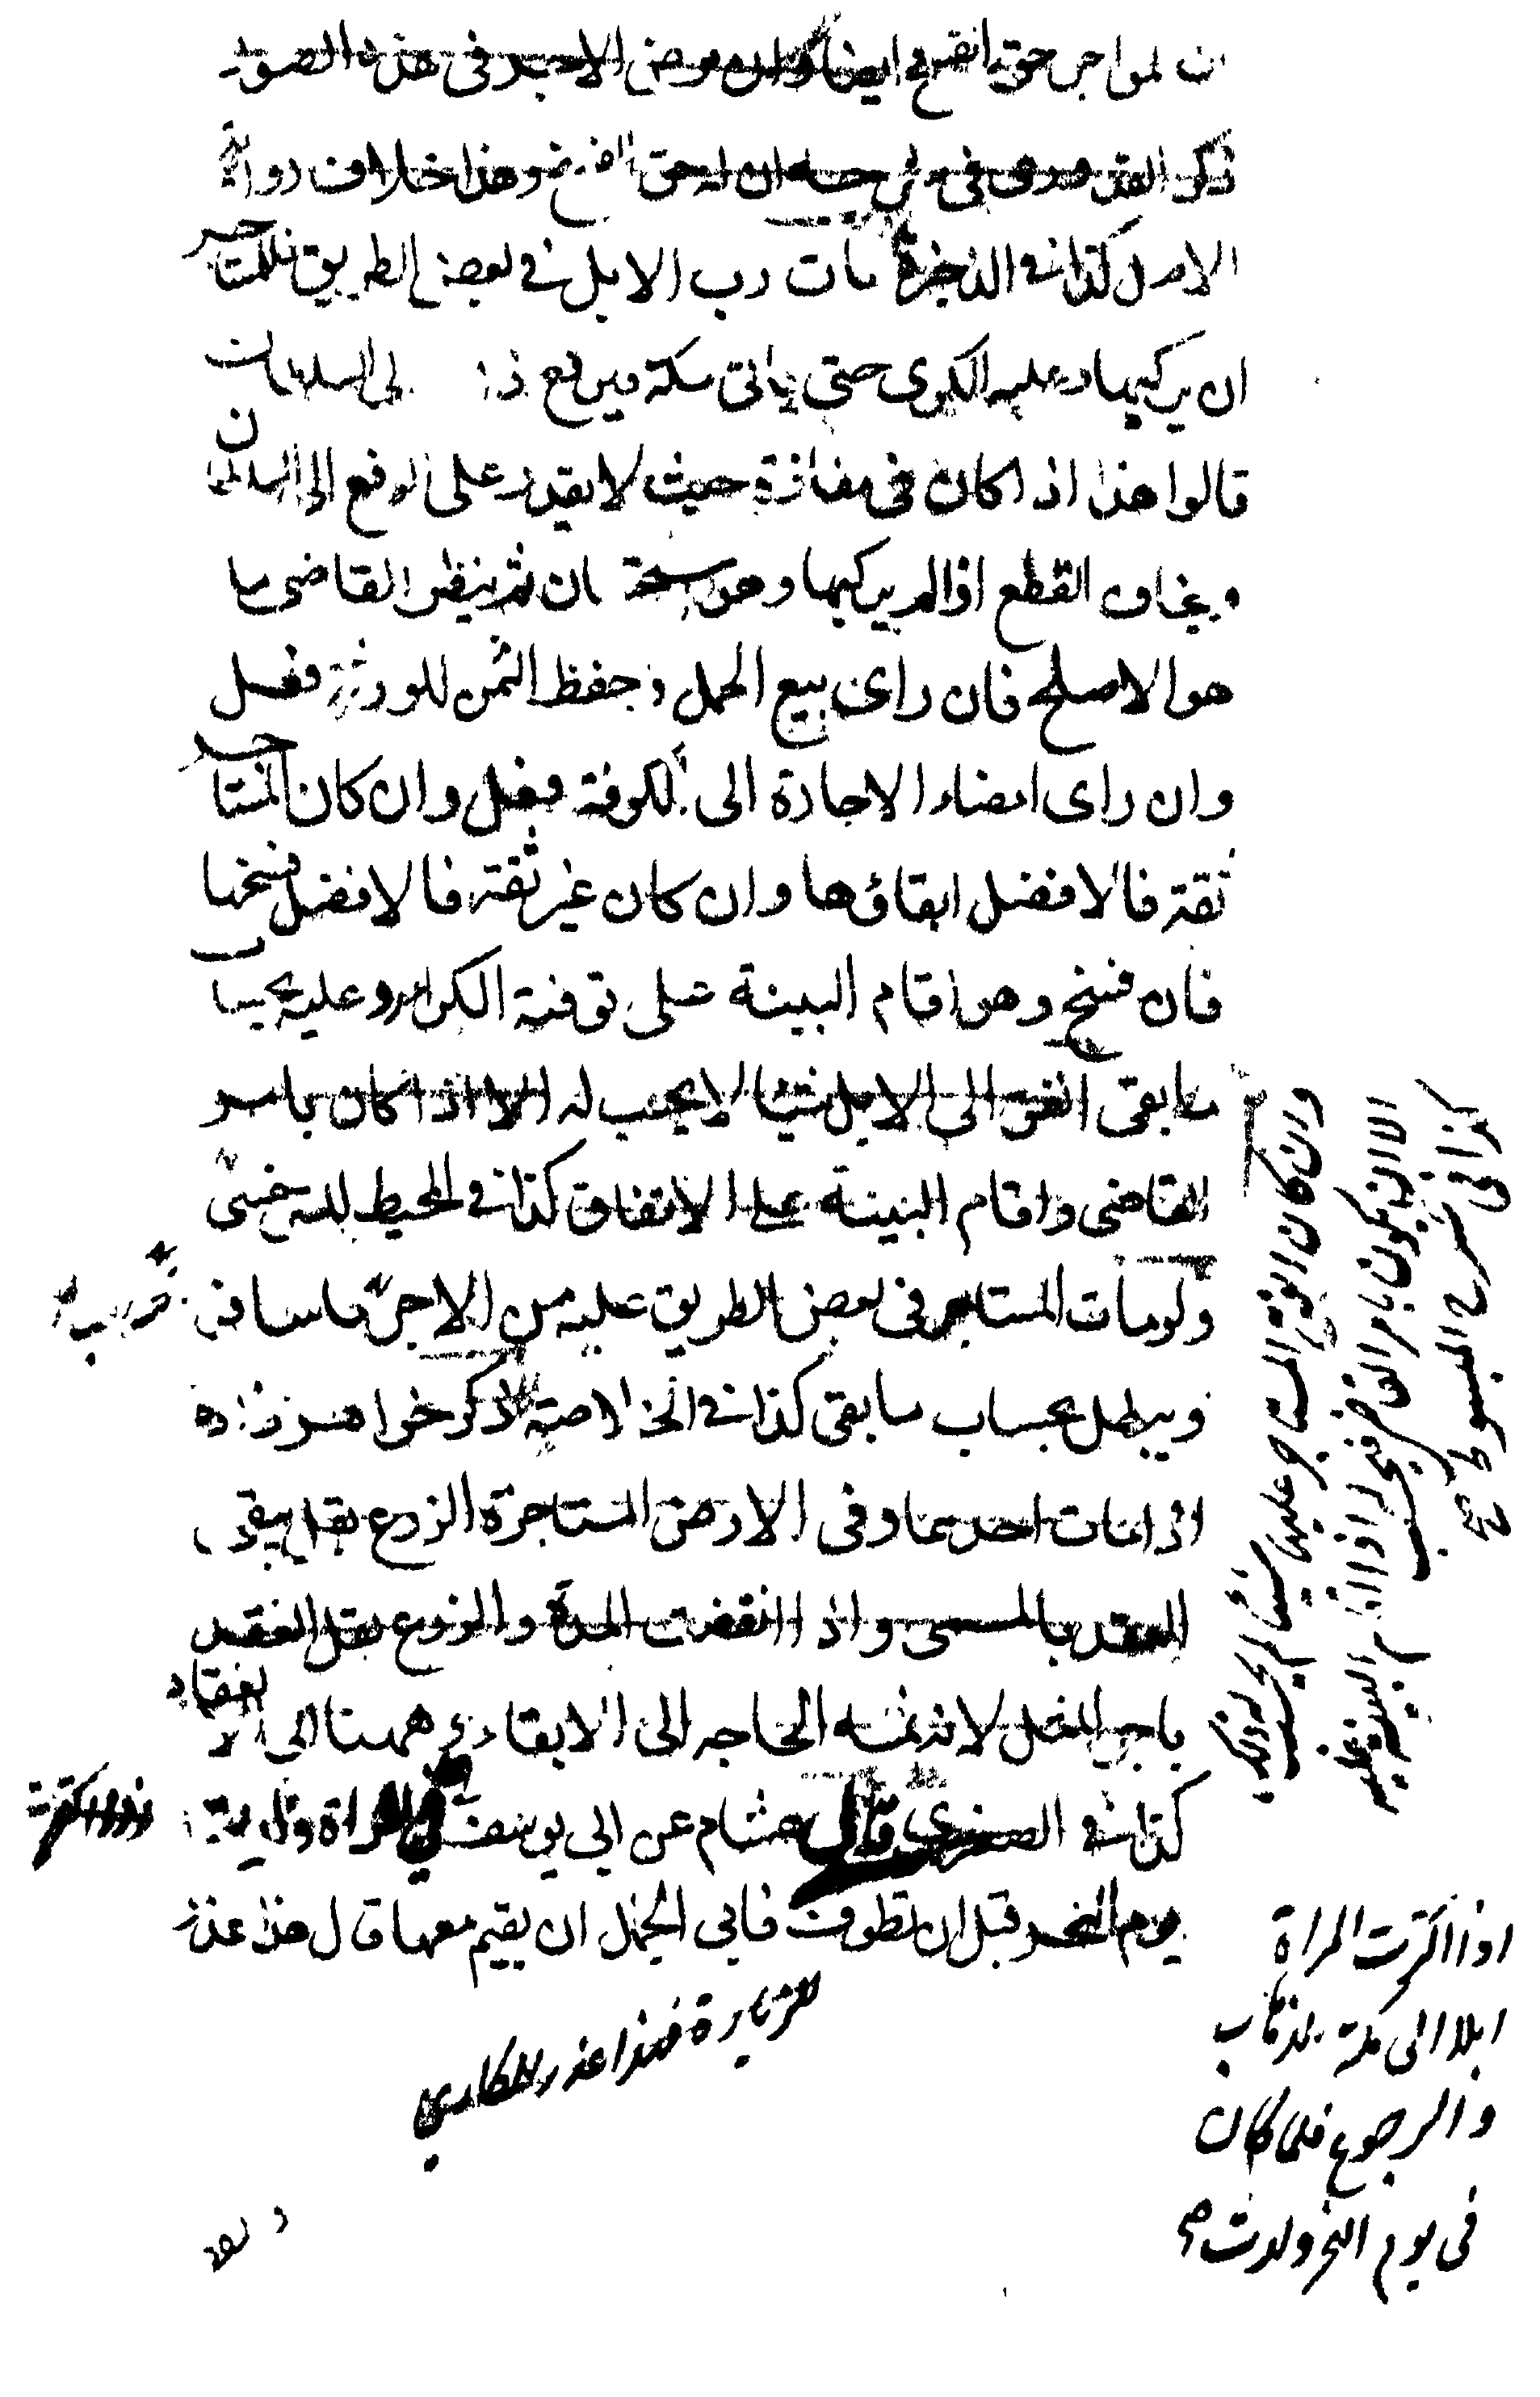 ن لمواجر حق الفسخ ايضا وان مرض الابل فى هذه الصورة
ذكر القدورى فى انه ان له حق الفسخ وهذا خلاف رواية
الاصل كذا فى الذخيرة مات رب الابل فى بعض الطريق فللمتاجر
ان يركبها وعليه الكرى حتى ياتى مكة فيرفع ذ لى السلطان
قالوا هذا اذا كان فى مفازة حيث لا يقدر على الرفع الى السلطان
ويخاف القطع اذا لم يركبها وهو ثم ينظر القاضى ما
هو الاصلح فان راى بيع الجمل وحفظ الثمن للورثة فعل
وان راى امضاء الاجارة الى الكوفة فعل وان كان المستاجر
ثقة فالافضل ابقاؤها وان كان غير ثقة فالافضل فسخها
فان فسخ وهو اقام البينة على توفية الكراء رد عليه بحساب
ما بقى انفق الى الابل شيئا لا يجب له الا اذا كان بامر
القاضى واقام البينة على الانفاق كذا فى المحيط للسرخسى
ولو مات المستاجر فى بعض الطريق عليه من الاجر ما سافر
ويبطل بحساب ما بقى كذا فى الخلاصة ذكر خواهر زاده
اذا مات احدهما وفى الارض المستاجرة الزرع بقل يبقى
العقد بالمسمى واذا انقضت المدة والزرع بقل العقد
باجر المثل لانه ثمه الحاجه الى الابقاء وههنا الى الانعقاد
كذا فى الصغرى قال هشام عن ابى يوسف فى امراة ولدت
يوم النحر قبل ان تطوف فابى الجمال ان يقيم معها قال هذا عذر
للزيارة فهذا عذر للمكارى
وان كان انفق المستاجر عليها شيئا لم يحسب له ذلك
الا ان يكون بامر القاضى فيحسب له اذا اقام البينة عليه
كذا فى شرح المبسوط صح
اذا اكترت المراة
ابلا الى مكة للذهاب
والرجوع فلما كان
فى يوم النحر ولدت صح